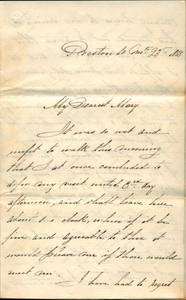 Preston St 
My Dearest Mary
It was so wet and
unfit to walk this morning
that I at once concluded to
defer my visit until 6th day
afternoon, and shall leave here
about 2 o'clock, when if it be
fine and agreeable to thee it
would please me if thou would
meet me.
I have had to regret